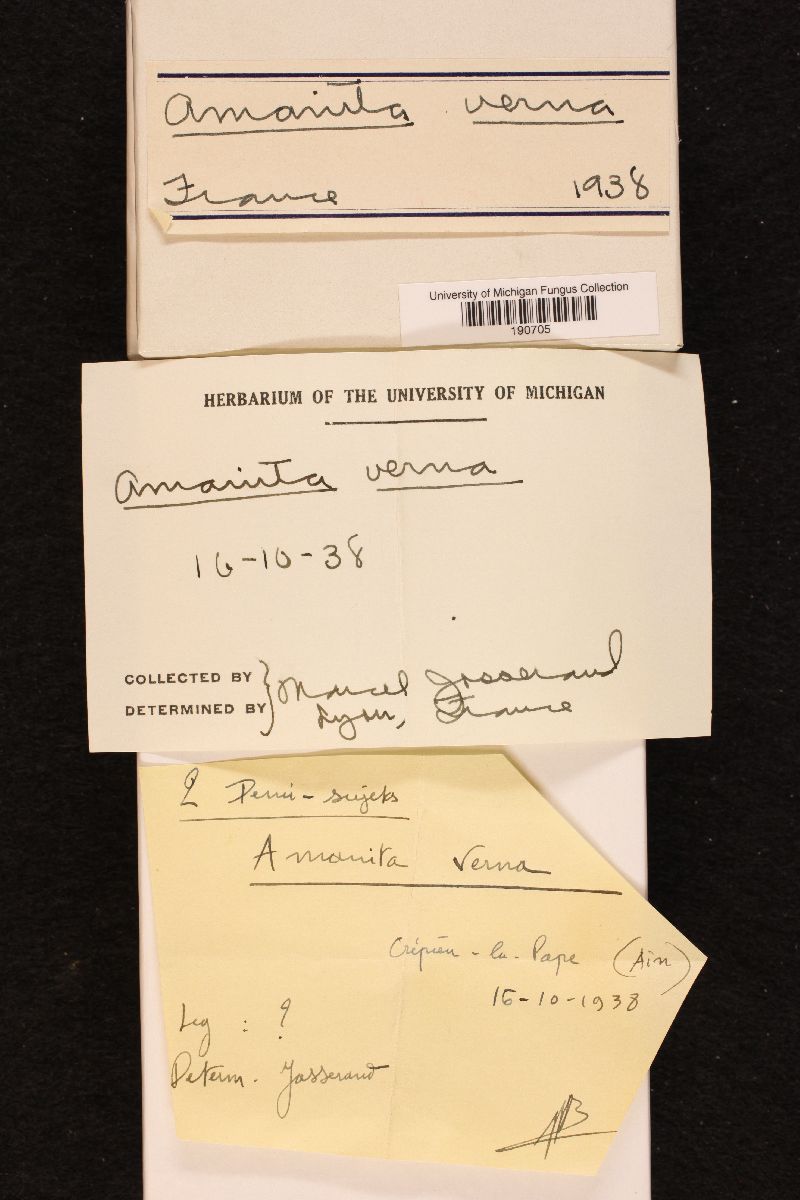 Amanita verna
France 1938
University of Michigan Fungus Collection
190705
HERBARIUM OF THE UNIVERSITY OF MICHIGAN
Amanita verna
16-10-38
COLLECTED BY
DETERMINED BY
} Marcel Josserand
Lyon, France
2 Demi-sujets
Amanita verna
Crépieu-la-Pape (Ain)
16-10-1938
Leg : ?
Determ. Josserand